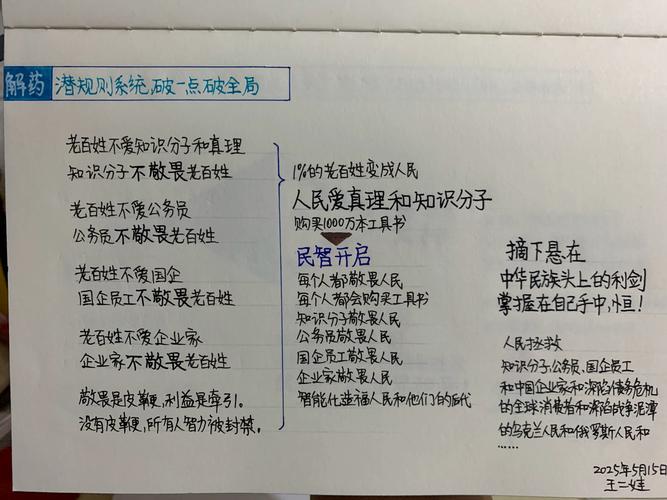 解药 潜规则系统,破一点破全局
老百姓不爱知识分子和真理
知识分子不敬畏老百姓
老百姓不爱公务员
公务员不敬畏老百姓
老百姓不爱国企
国企员工不敬畏老百姓
老百姓不爱企业家
企业家不敬畏老百姓
敬畏是皮鞭,利益是牵引。
没有皮鞭,所有人智力被封禁。
1%的老百姓变成人民
人民爱真理和知识分子
购买1000万本工具书
民智开启
每个人都敬畏人民
每个人都会购买工具书
知识分子敬畏人民
公务员敬畏人民
国企员工敬畏人民
企业家敬畏人民
智能化造福人民和他们的后代
摘下悬在
中华民族头上的利剑
掌握在自己手中,恒!
人民拯救
知识分子、公务员、国企员工
和中国企业家和深陷债务危机
的全球消费者和深陷战争泥潭
的乌克兰人民和俄罗斯人民和
……
2025年5月15日
王二娃